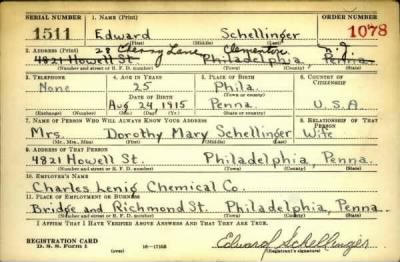 SERIAL NUMBER 1. NAME (Print) ORDER NUMBER
1511 Edward Schellinger 1078
(First) (Middle) (Last)
28 Cherry Lane Clementon N.J.
2. ADDRESS (Print)
4821 Howell St. Philadelphia, Penna.
(Number and street or R. F. D. number) (Town) (County) (State)
3. TELEPHONE 4. AGE IN YEARS 5. PLACE OF BIRTH 6. COUNTRY OF CITIZENSHIP
None 25 Phila.
DATE OF BIRTH (Town or county)
Aug 24, 1915 Penna. U.S.A.
(Exchange) (Number) (Mo.) (Day) (Yr.) (State or country)
7. NAME OF PERSON WHO WILL ALWAYS KNOW YOUR ADDRESS 8. RELATIONSHIP OF THAT PERSON
Mrs. Dorothy Mary Schellinger Wife
(Mr., Mrs., Miss) (First) (Middle) (Last)
9. ADDRESS OF THAT PERSON
4821 Howell St. Philadelphia, Penna.
(Number and street or R. F. D. number) (Town) (County) (State)
10. EMPLOYER'S NAME
Charles Lenig Chemical Co.
11. PLACE OF EMPLOYMENT OR BUSINESS
Bridge and Richmond St. Philadelphia, Penna.
(Number and street or R. F. D. number) (Town) (County) (State)
I AFFIRM THAT I HAVE VERIFIED ABOVE ANSWERS AND THAT THEY ARE TRUE.
REGISTRATION CARD Edward Schellinger
D. S. S. Form 1 (over) (Registrant's signature)